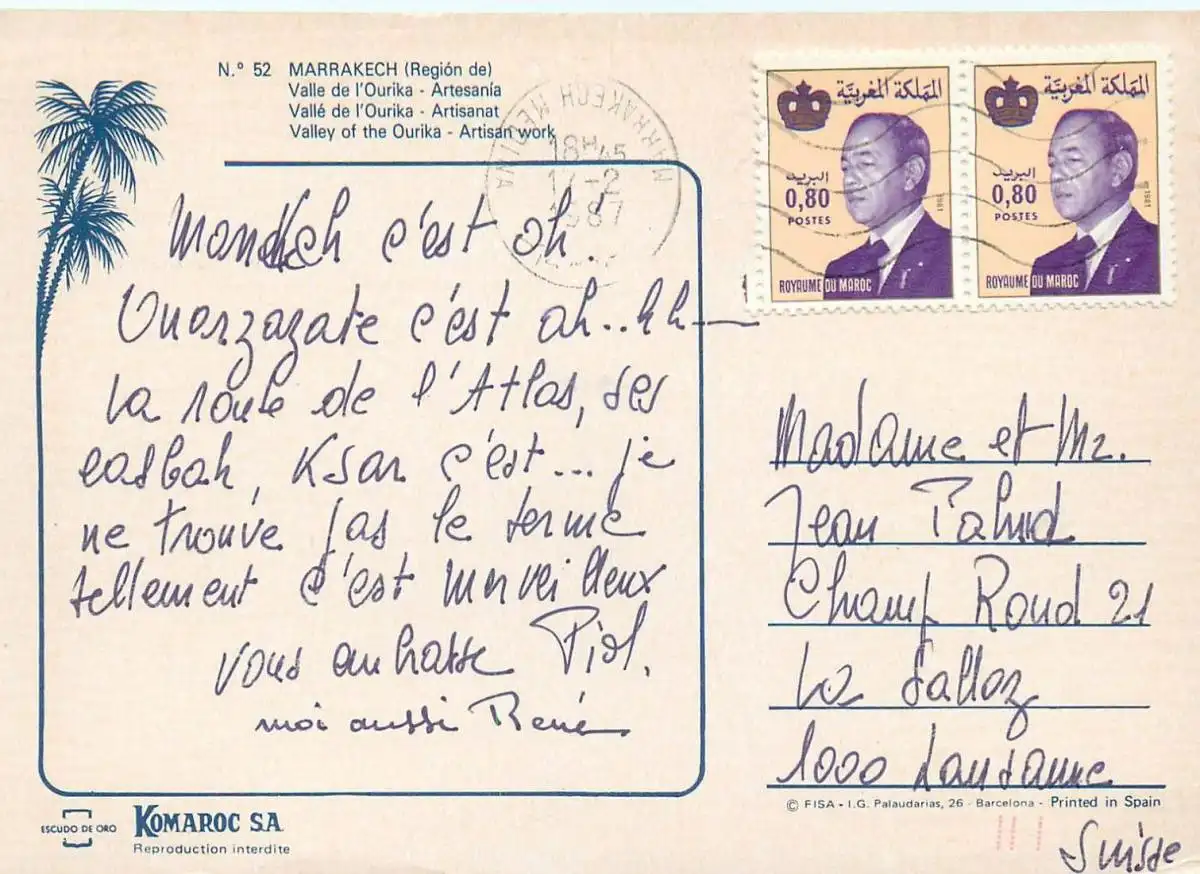 N.º 52 MARRAKECH (Región de)
Valle de l'Ourika - Artesanía
Vallé de l'Ourika - Artisanat
Valley of the Ourika - Artisan work
MARRAKECH MEDINA
18H45
1987
المملكة المغربية
البريد
0,80
POSTES
1981
ROYAUME DU MAROC
المملكة المغربية
البريد
0,80
POSTES
1981
ROYAUME DU MAROC
c'est oh.
Ouarzazate c'est ah..hh
La route de l'Atlas, des
casbah, Ksar c'est... je
ne trouve pas le terme
tellement c'est merveilleux
vous embrasse
moi aussi René
Madame et Mr.
Jean
Champ Rond 21
La Sallaz
1000 Lausanne
Suisse
ESCUDO DE ORO
KOMAROC S.A.
Reproduction interdite
© FISA - I.G. Palaudarias, 26 - Barcelona - Printed in Spain